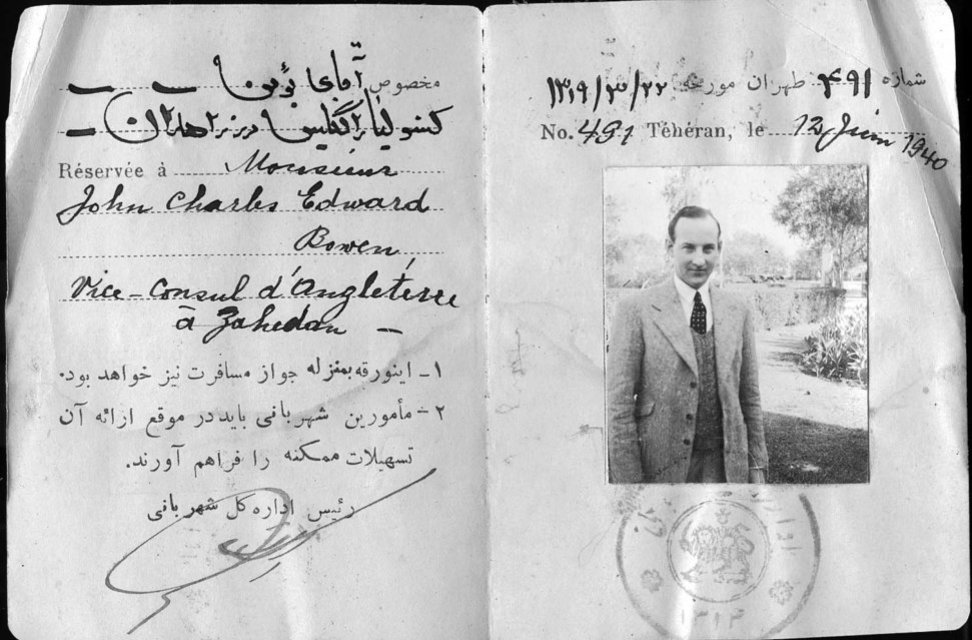 مخصوص آقای بوئن
کنسولیار انگلیس در زاهدان
Réservée à Monsieur
John Charles Edward
Bowen,
Vice-Consul d'Angleterre
à Zahedan
۱ـ اینورقه بمنزله جواز مسافرت نیز خواهد بود.
۲ـ مأمورین شهربانی باید در موقع ارائه آن
تسهیلات ممکنه را فراهم آورند.
رئیس اداره کل شهربانی
شماره ۴۹۱ طهران مورخه ۱۳۱۹/۳/۲۲
No. 491 Téhéran, le 12 Juin 1940